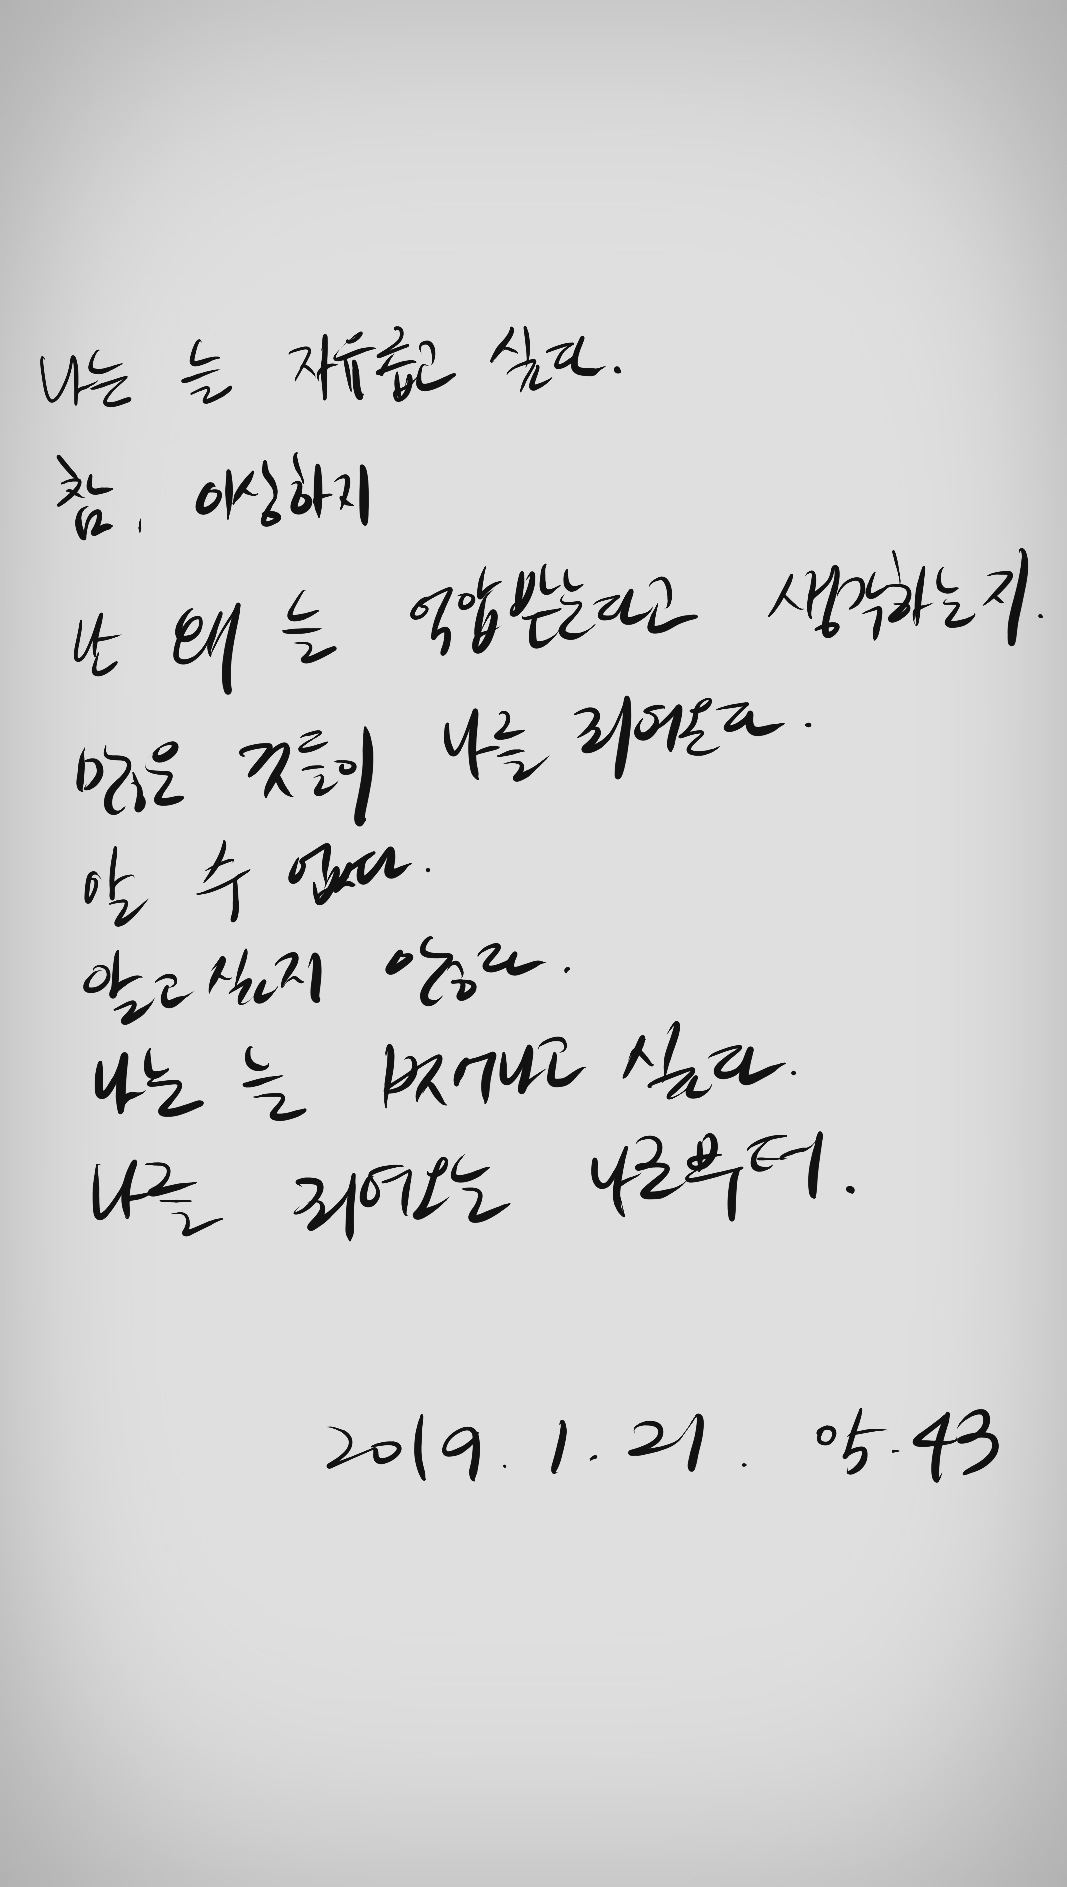 나는 늘 자유롭고 싶다.
참, 이상하지
난 왜 늘 억압받는다고 생각하는지.
많은 것들이 나를 죄어온다.
알 수 없다.
알고 싶지 않다.
나는 늘 벗어나고 싶다.
나를 죄어오는 나로부터.
2019. 1. 21. 43